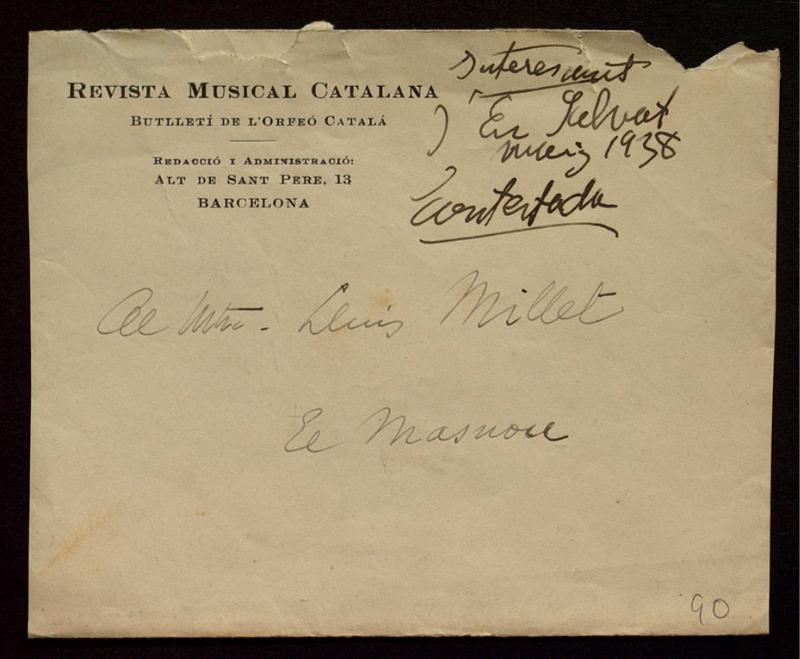 REVISTA MUSICAL CATALANA
BUTLLETÍ DE L'ORFEÓ CATALÁ
REDACCIÓ I ADMINISTRACIÓ:
ALT DE SANT PERE, 13
BARCELONA
Interesant
En Salvat
maig 1938
Contestada
Al Mtre. Lluis Millet
El Masnou
90